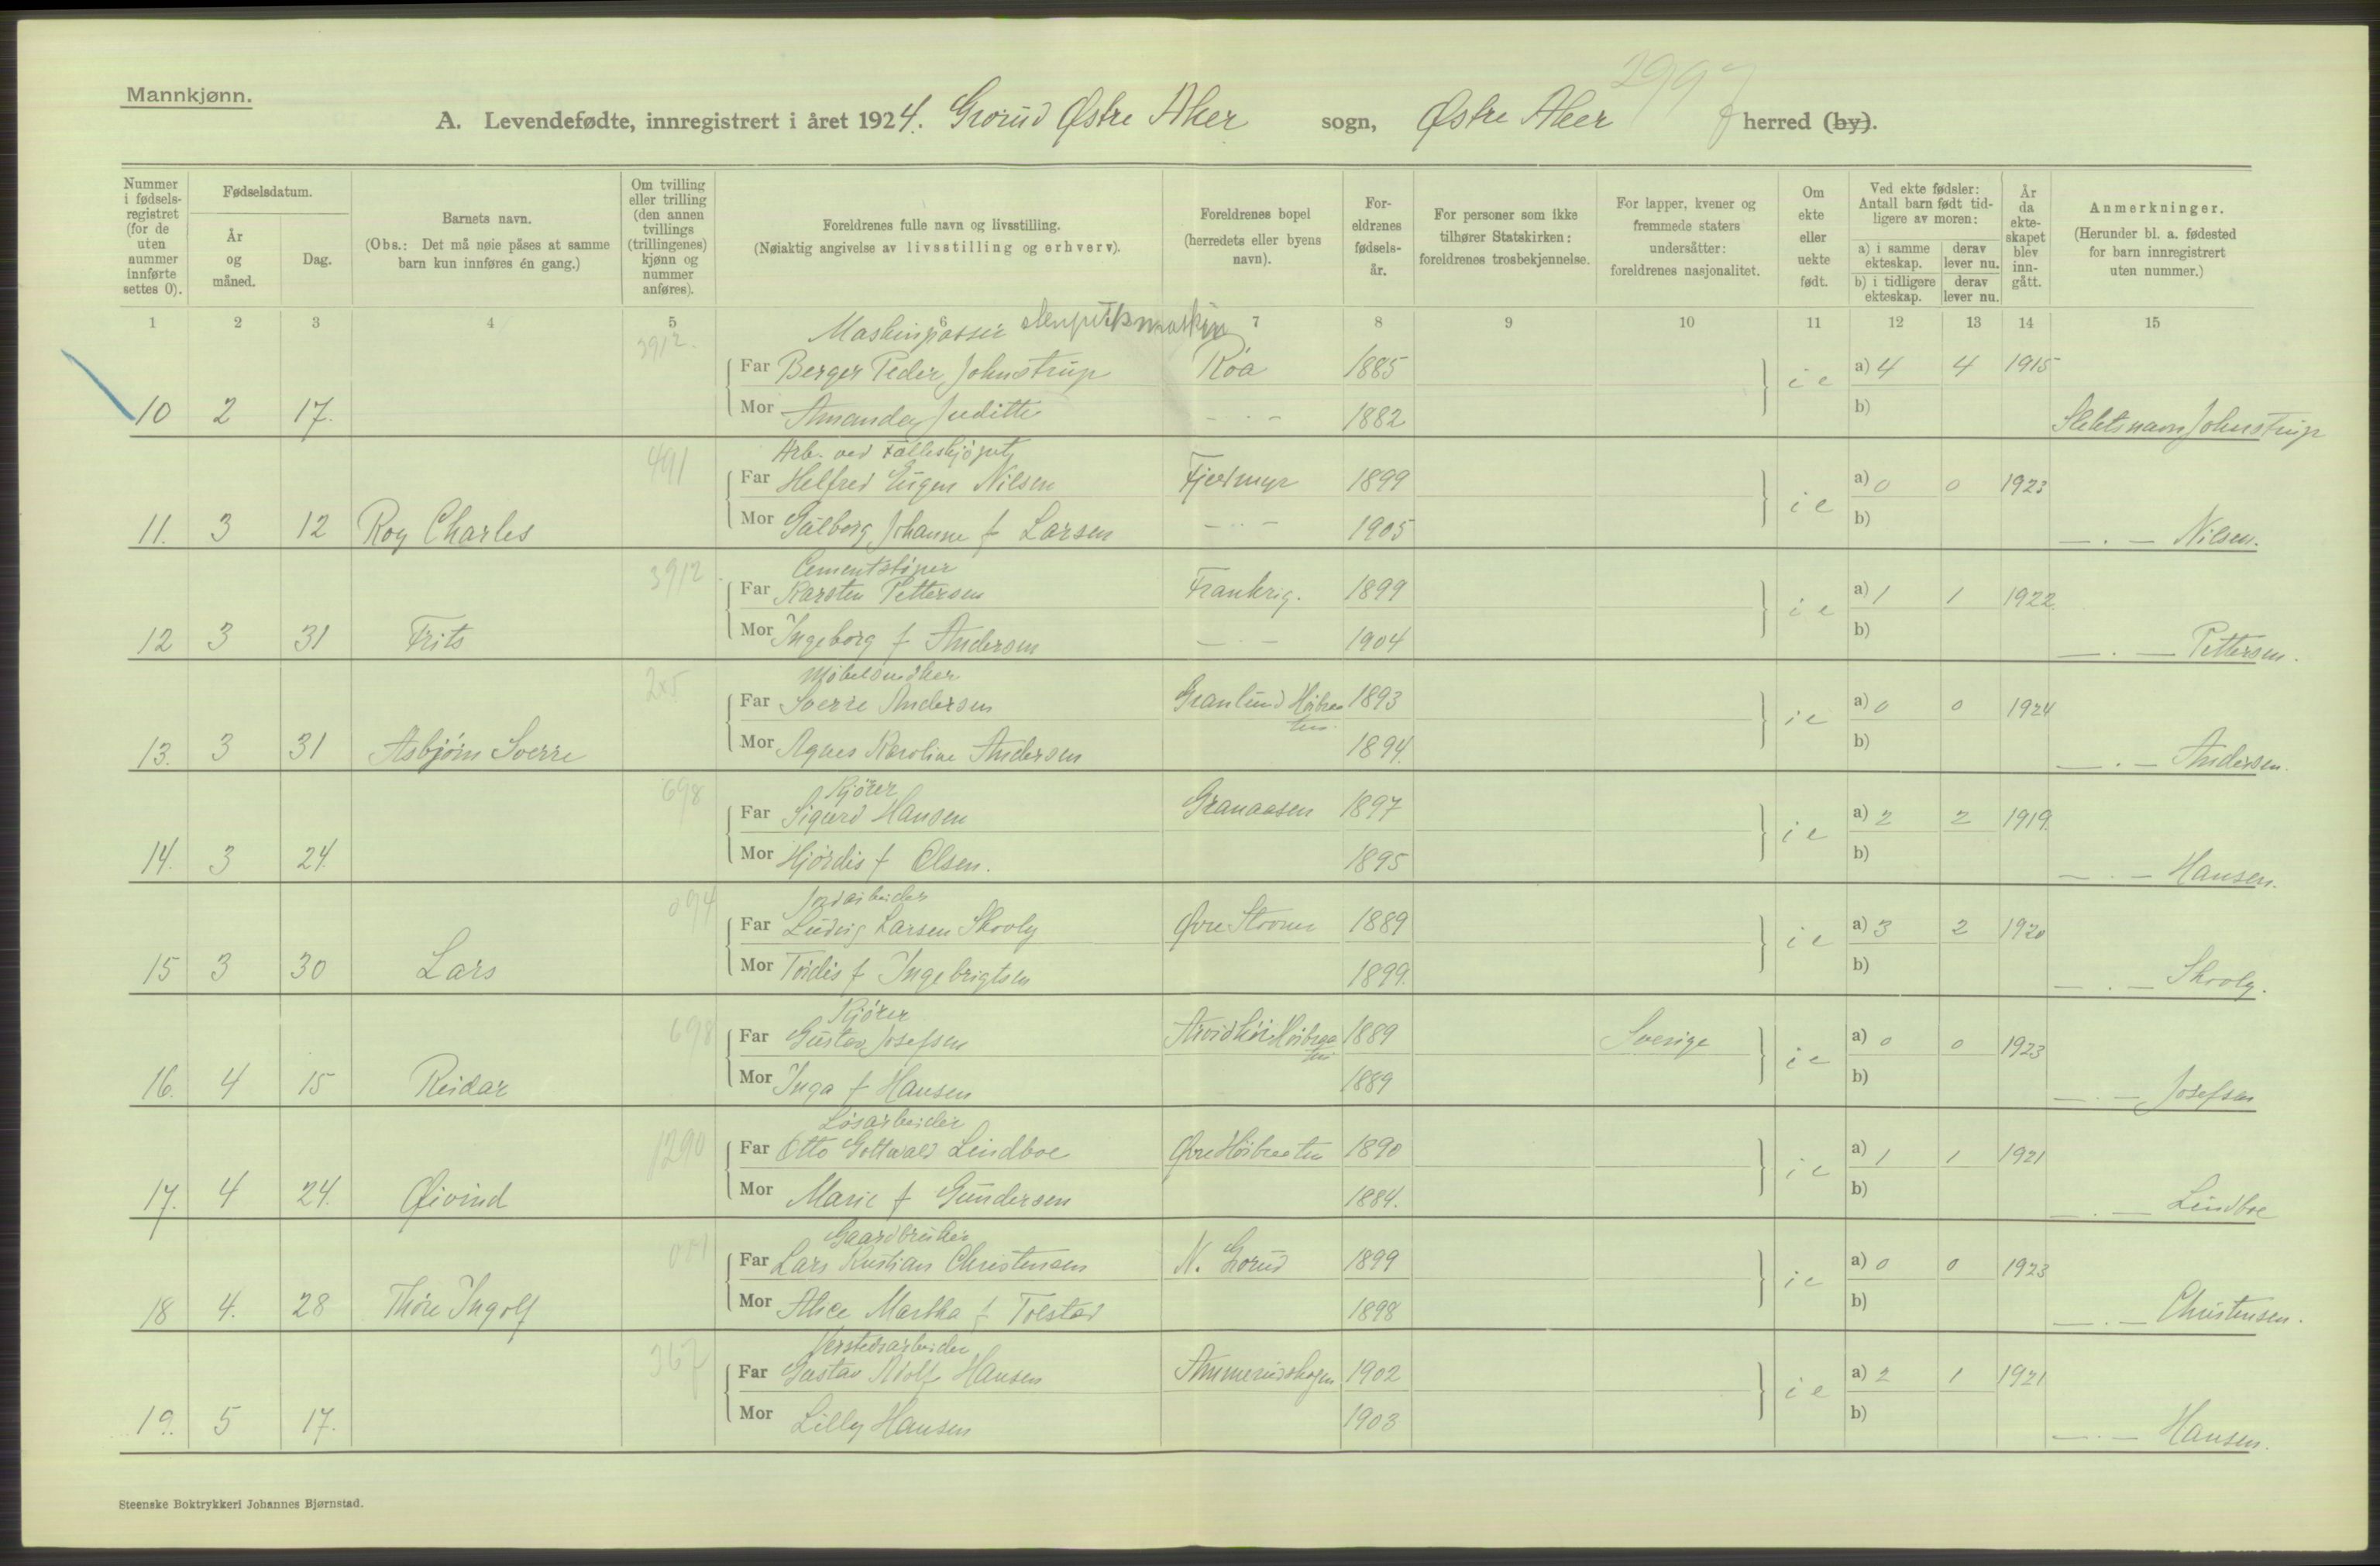 Mannkjønn.
2997
A. Levendefødte, innregistrert i året 1924. Grorud Østre Aker sogn, Østre Aker herred (by).
Nummer i fødsels-registret (for de uten nummer innførte settes 0).
Fødselsdatum.
År og måned.
Dag.
Barnets navn.
(Obs.: Det må nøie påses at samme barn kun innføres én gang.)
Om tvilling eller trilling (den annen tvillings (trillingenes) kjønn og nummer anføres).
Foreldrenes fulle navn og livsstilling.
(Nøiaktig angivelse av livsstilling og erhverv).
Foreldrenes bopel (herredets eller byens navn).
For-eldrenes fødsels-år.
For personer som ikke tilhører Statskirken: foreldrenes trosbekjennelse.
For lapper, kvener og fremmede staters undersåtter: foreldrenes nasjonalitet.
Om ekte eller uekte født.
Ved ekte fødsler: Antall barn født tid-ligere av moren:
a) i samme ekteskap. derav lever nu.
b) i tidligere ekteskap. derav lever nu.
År da ekte-skapet blev inn-gått.
Anmerkninger.
(Herunder bl. a. fødested for barn innregistrert uten nummer.)
1 2 3 4 5 6 7 8 9 10 11 12 13 14 15
3912. Maskinpasser
Far Berger Peder Johnstrup Røa 1885 a) 4 4 1915
10 2 17. Mor Amanda Juditte — . — 1882 i e b) Slektsnavn Johnstrup
491 Arb. ved
Far Helfred Eugen Nilsen 1899 a) 0 0 1923
11. 3 12 Roy Charles Mor Johanne f Larsen — . — 1905 i e b) — . — Nilsen.
3912. Cementstøper
Far Karsten Pettersen Frankrig. 1899 a) 1 1 1922
12 3 31 Frits Mor Ingeborg f Andersen — . — 1904 i e b) — . — Pettersen.
Møbelsnedker
Far Sverre Andersen Granlund Høibraaten 1893 a) 0 0 1924
13. 3 31 Asbjørn Sverre Mor Agnes Karoline Andersen 1894. i e b) — . — Andersen.
698 Kjører
Far Sigurd Hansen Granaasen 1897 a) 2 2 1919.
14. 3 24. Mor Hjørdis f Olsen. 1895 i e b) — . — Hansen.
094 Jordarbeider
Far Ludvig Larsen Skovly Øvre 1889 a) 3 2 1920
15 3 30 Lars Mor Tordis f Ingebrigtsen 1899. i e b) — . — Skovly.
698 Kjører
Far Gustav Josefsen Høibraaten 1889 Sverige a) 0 0 1923
16. 4 15 Reidar Mor Inga f Hansen 1889 i e b) — . — Josefsen
1290 Løsarbeider
Far Otto Gottwald Lindboe Øvre Høibraaten 1890 a) 1 1 1921
17. 4 24. Øivind Mor Marie f Gundersen 1884. i e b) — . — Lindboe
001 Gaardbruker
Far Lars Kristian Christensen N. Grorud 1899 a) 0 0 1923
18 4. 28 Thore Ingolf Mor Alice Martha f Tolstad 1898 i e b) — . — Christensen.
367 Verkstedsarbeider
Far Gustav Adolf Hansen Ammerudskogen 1902 a) 2 1 1921
19. 5 17. Mor Lilly Hansen 1903 i e b) — . — Hansen.
Steenske Boktrykkeri Johannes Bjørnstad.